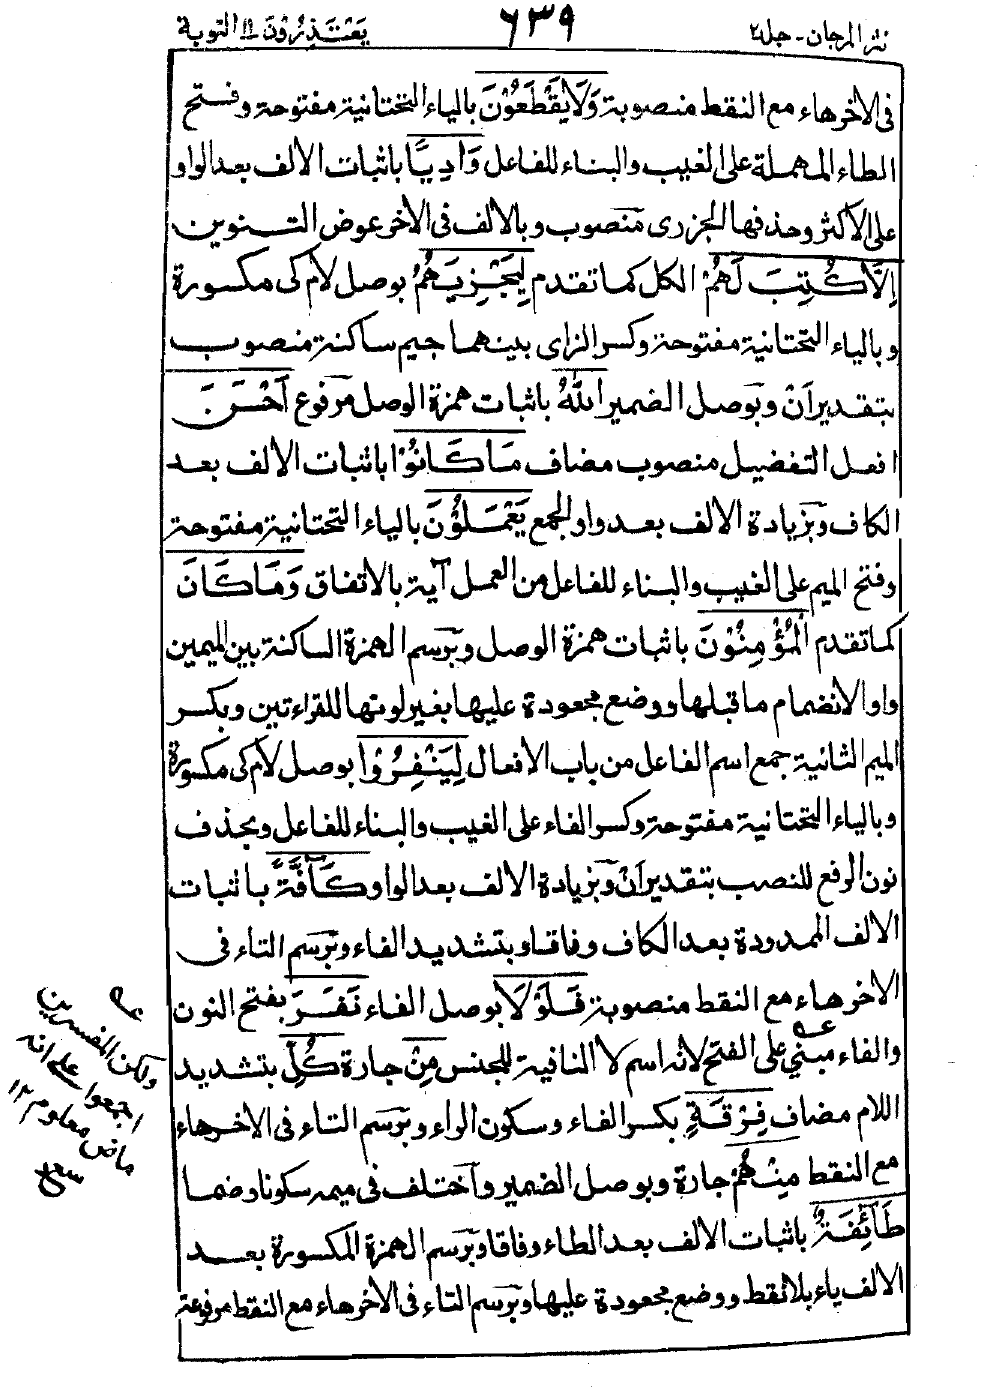 نثر المرجان - جلد ٢
٦٣٩
يعتذرون ١١ التوبة
فى الآخر هاء مع النقط منصوبة وَلَا يَقْطَعُوْنَ بالياء التحتانية مفتوحة وفتح
الطاء المهملة على الغيب والبناء للفاعل وَادِيًا باثبات الالف بعد الواو
على الأكثر وحذفها الجزرى منصوب وبالالف فى الآخر عوض التنوين
اِلَّا كُتِبَ لَهُمْ الكل كما تقدم لِيَجْزِيَهُمُ بوصل لام كى مكسورة
وبالياء التحتانية مفتوحة وكسر الزاى بينهما جيم ساكنة منصوب
بتقدير اَنْ وبوصل الضمير اللّٰهُ باثبات همزة الوصل مرفوع اَحْسَنَ
افعل التفضيل منصوب مضاف مَا كَانُوْا باثبات الالف بعد
الكاف وبزيادة الالف بعد واو الجمع يَعْمَلُوْنَ بالياء التحتانية مفتوحة
وفتح الميم على الغيب والبناء للفاعل من العمل آية بالاتفاق وَمَا كَانَ
كما تقدم الْمُؤْمِنُوْنَ باثبات همزة الوصل وبرسم الهمزة الساكنة بين الميمين
واوا لانضمام ما قبلها ووضع مجعودة عليها بغير لونها للقراءتين وبكسر
الميم الثانية جمع اسم الفاعل من باب الافعال لِيَنْفِرُوْا بوصل لام كى مكسورة
وبالياء التحتانية مفتوحة وكسر الفاء على الغيب والبناء للفاعل وبحذف
نون الرفع للنصب بتقدير اَنْ وبزيادة الالف بعد الواو كَآفَّةً باثبات
الالف الممدودة بعد الكاف وفاقا وبتشديد الفاء وبرسم التاء فى
الآخر هاء مع النقط منصوبة فَلَوْلَا بوصل الفاء نَفَرَ بفتح النون
والفاء مبني على الفتح لانه اسم لا النافية للجنس مِنْ جارة كُلِّ بتشديد
اللام مضاف فِرْقَةٍ بكسر الفاء وسكون الراء وبرسم التاء فى الآخر هاء
مع النقط مِنْهُمْ جارة وبوصل الضمير واختلف فى ميمه سكونا وضما
طَآئِفَةٌ باثبات الالف بعد الطاء وفاقا وبرسم الهمزة المكسورة بعد
الالف ياء بلا نقط ووضع مجعودة عليها وبرسم التاء فى الآخر هاء مع النقط مرفوعة
عه
ولكن المفسرين
اجمعوا على انه
ماض معلوم ١٢
سعد